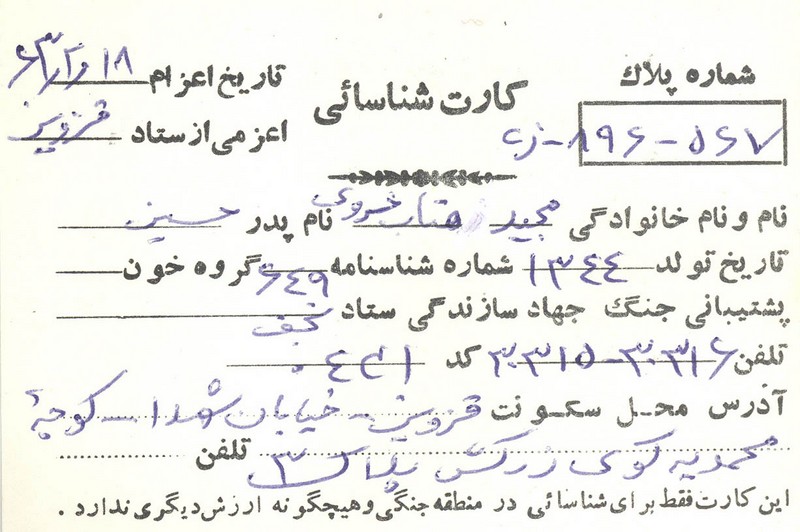 شماره پلاك
کارت شناسائی
تاریخ اعزام ۱۸ر۶۳
۵۶۷-۸۹۶-
اعزامی از ستاد قزوین
نام و نام خانوادگی مجید خسروی نام پدر حسین
تاریخ تولد ۱۳۴۴ شماره شناسنامه ۶۴۹ گروه خون
پشتیبانی جنگ جهاد سازندگی ستاد نجف
تلفن ۳۰۳۱۵-۳۰۳۱۶ کد
آدرس محل سکونت قزوین - خیابان شهدا - کوچه
محمدیه کوی زرکش پلاک ۳ تلفن
این کارت فقط برای شناسائی در منطقه جنگی و هیچگونه ارزش دیگری ندارد .